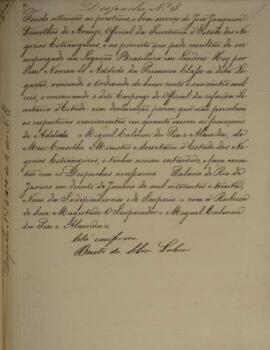 Despacho N.º 3
Tendo attenção ao prestimo, e bom serviço de José Joaquim
Timotheo de Araujo, Official da Secretaria d'Estado dos Ne-
gocios Estrangeiros, e ao proveito que pode resultar de ser
empregado na Legação Brasileira em Londres: Hei por
bem Nomea-lo Addido da Primeira Classe á dita Lega-
ção, vencendo o Ordenado de hum conto e seis centos mil
reis, e conservando o dito Emprego de Official da referida Se-
cretaria d'Estado com declaração porem, que não perceberá
os respectivos vencimentos, em quanto exercer as funcções
de Addido. Miguel Calmon du Pin e Almeida, do
Meu Conselho, Ministro e Secretario d'Estado dos Ne-
gocios Estrangeiros, o tenha assim entendido, e faça execu-
tar com os Despachos necessarios. Palacio do Rio de
Janeiro em de Janeiro de mil oitocentos e trinta,
Nono da Independencia e do Imperio = com a Rubrica
de Sua Magestade O Imperador = Miguel Calmon
du Pin e Almeida =
Está conforme
Bento da Silva Lisboa